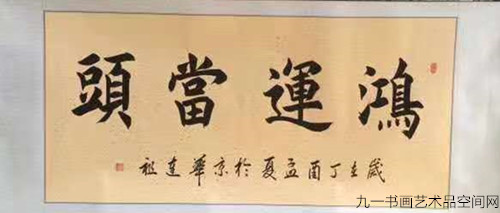 鴻運當頭
歲在丁酉孟夏於京華連祖
九一书画艺术品空间网